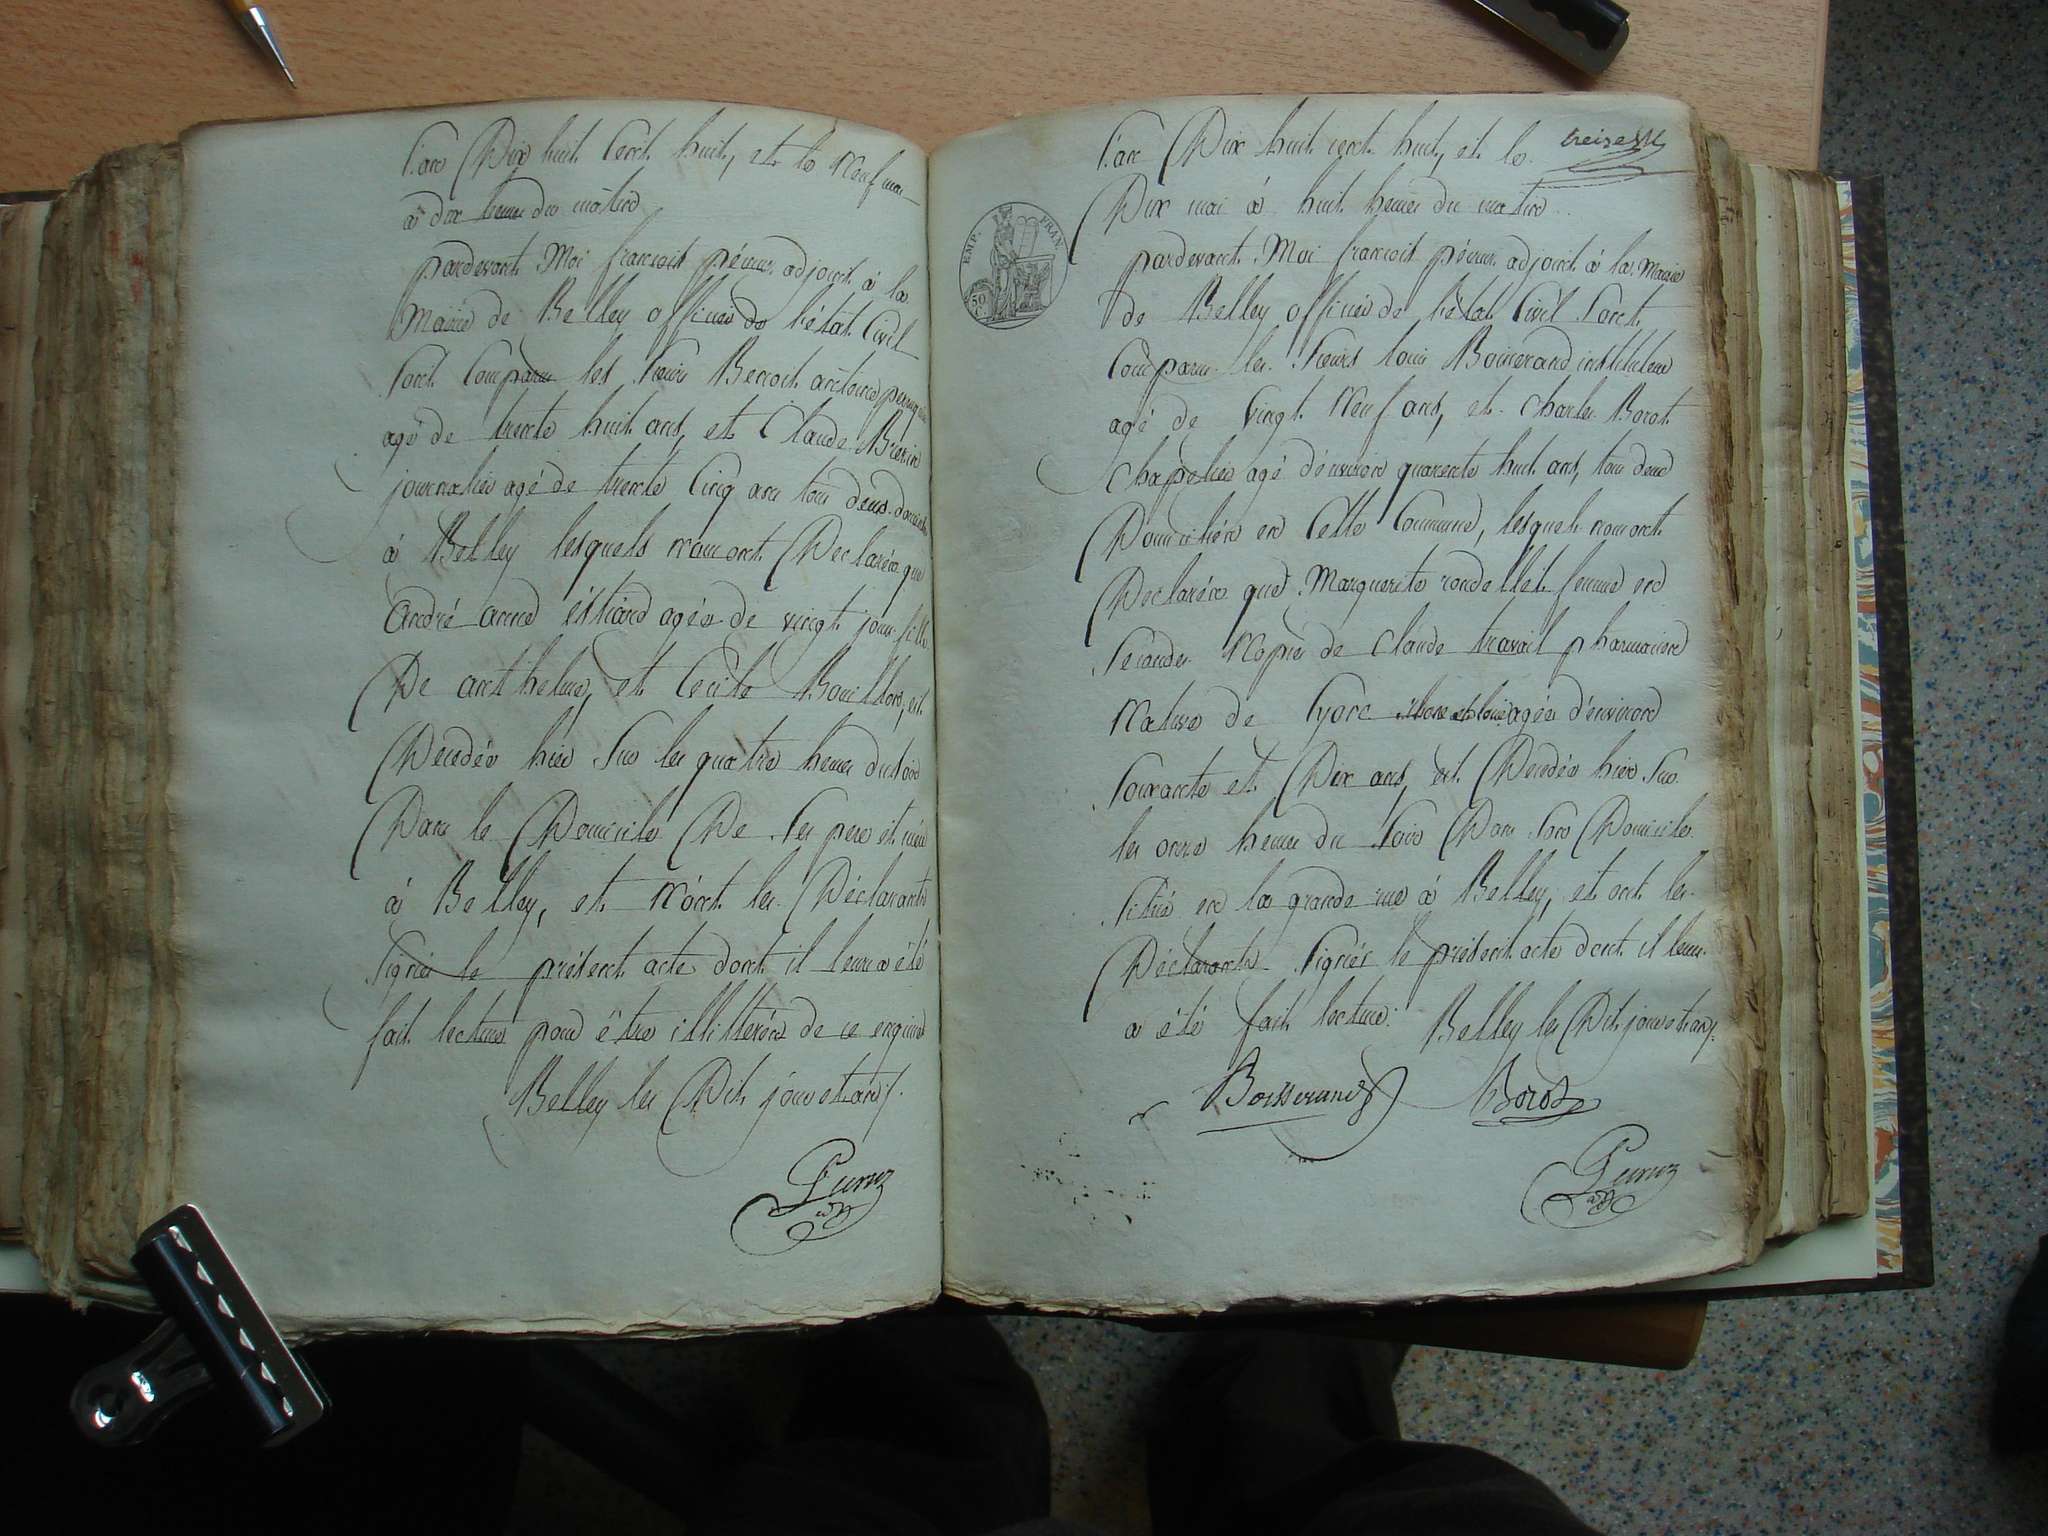 l'an Dix huit Cent huit, et le Neuf mai
à dix heures du matin
pardevant Moi francois péeruz adjoint à la
Mairie de Belley officier de l'état Civil
Sont Comparus les Sieurs Benoit antoine
agé de trente huit ans, et Claude
journalier agé de trente Cinq ans tous deux
à Belley lesquels n'ont Declarér que
André anne éstiand agée de vingt jours fille
De anthelme, et Cecile Bouillon, est
Decedée hier Sur les quatre heures du soir
Dans le Domicile De Ses pere et mère
à Belley, et N'ont les Déclarants
Signés le présent acte dont il leur a été
fait lecture pour être illitterés de ce enquis
Belley les Dit jour et an.
Peeruz
adj
treize
l'an Dix huit cent huit, et le
Dix mai à huit heures du matin
pardevant Moi francois péeruz adjoint à la Mairie
de Belley officier de l'état Civil Sont
Comparus les Sieurs louis Boisserand instituteur
agé de Vingt Neuf ans, et charles Borot
chapelier agé d'environ quarente huit ans, tous deux
Domiciliés en Cette Commune, lesquels n'ont
Declarér que Marguerite rondellet femme en
Seconder Noper de Claude travail pharmacien
Native de Lyon agée d'environ
Soixante et Dix ans, est Decedée hier Sur
les onze heures du Soir Dans Son Domicile
Situé en la grande rue à Belley, et ont les
Déclarants Signés le présent acte dont il leur
a été fait lecture. Belley les Dit jour et an.
Boisserand Borot
Peeruz
adj
EMP. FRAN.
50 C.